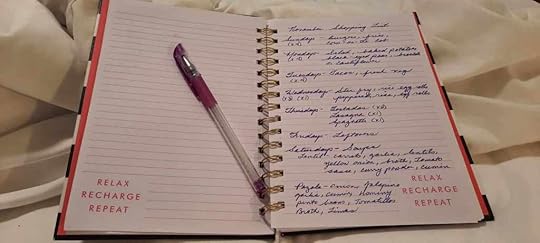 RELAX
RECHARGE
REPEAT
November Shopping List
Sundays - burgers, fries,
(x4) corn on the cob
Mondays - Salad, baked potatoes
(x4) black eyed peas, broccoli
& cauliflower
Tuesdays - Tacos, fresh veg
(x4)
Wednesdays - Stir fry, rice, egg rolls
(x1) rice, egg rolls
Thursdays - Tostadas (x2)
Lasagna (x1)
Spaghetti (x1)
Fridays - Leftovers
Saturdays - Soups
Lentil - carrot, garlic, lentils,
yellow onion, broth, tomato
sauce, curry powder, cumin
onion, jalapeno
hominy
pinto beans, tomatillos
Broth, limes
RELAX
RECHARGE
REPEAT